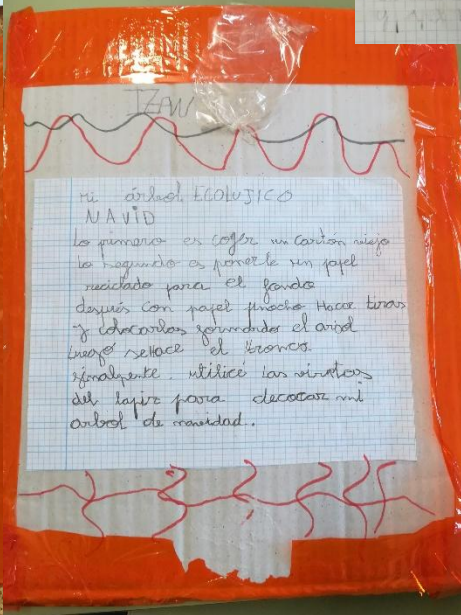 IZAN
Mi árbol ECOLUJICO
NAVID
Lo primero es coger un cartón viejo
Lo segundo es ponerle un papel
reciclado para el fondo
después con papel pinocho Hacer tiras
y colocarlas formando el arbol
Luego seHace el tronco.
finalmente. utilicé las virutas
del lapiz para decocar mi
arbol de navidad..